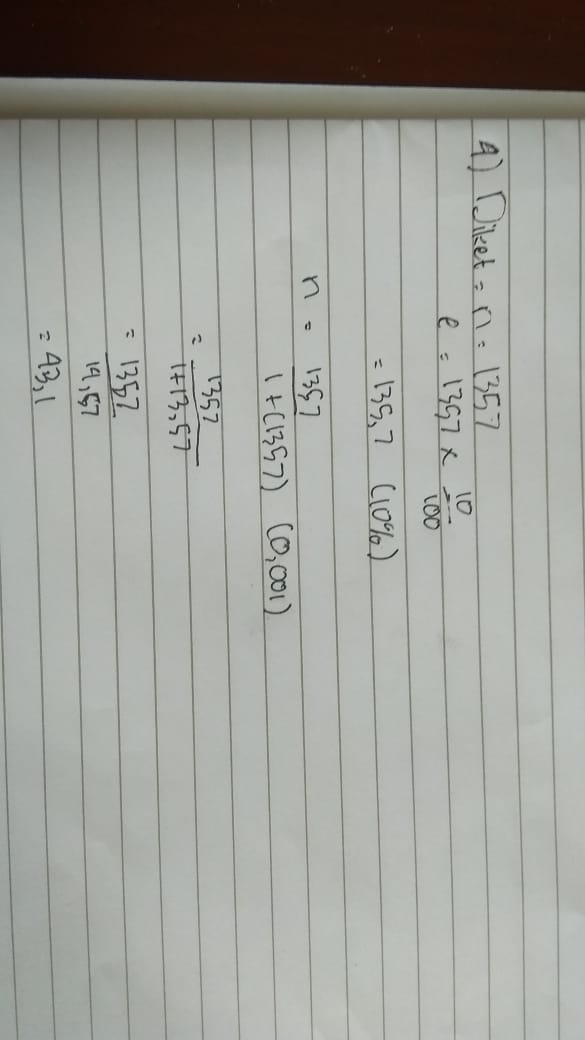 4) Diket = n = 1357
e = 1357 x 10/100
= 135,7 (10%)
n = 1357 / 1 + (1357) (0,001)
= 1357 / 1 + 13,57
= 1357 / 14,57
= 93,1